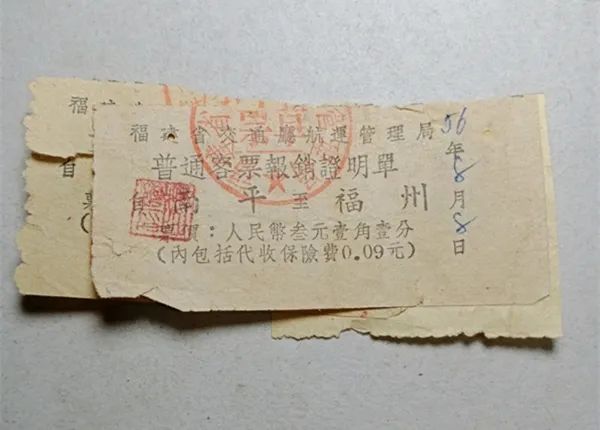 福建省交通廳航運管理局
普通客票報銷證明單
自南平至福州
票價：人民幣叁元壹角壹分
（內包括代收保險費0.09元）
56年8月8日
福建
省
票
（